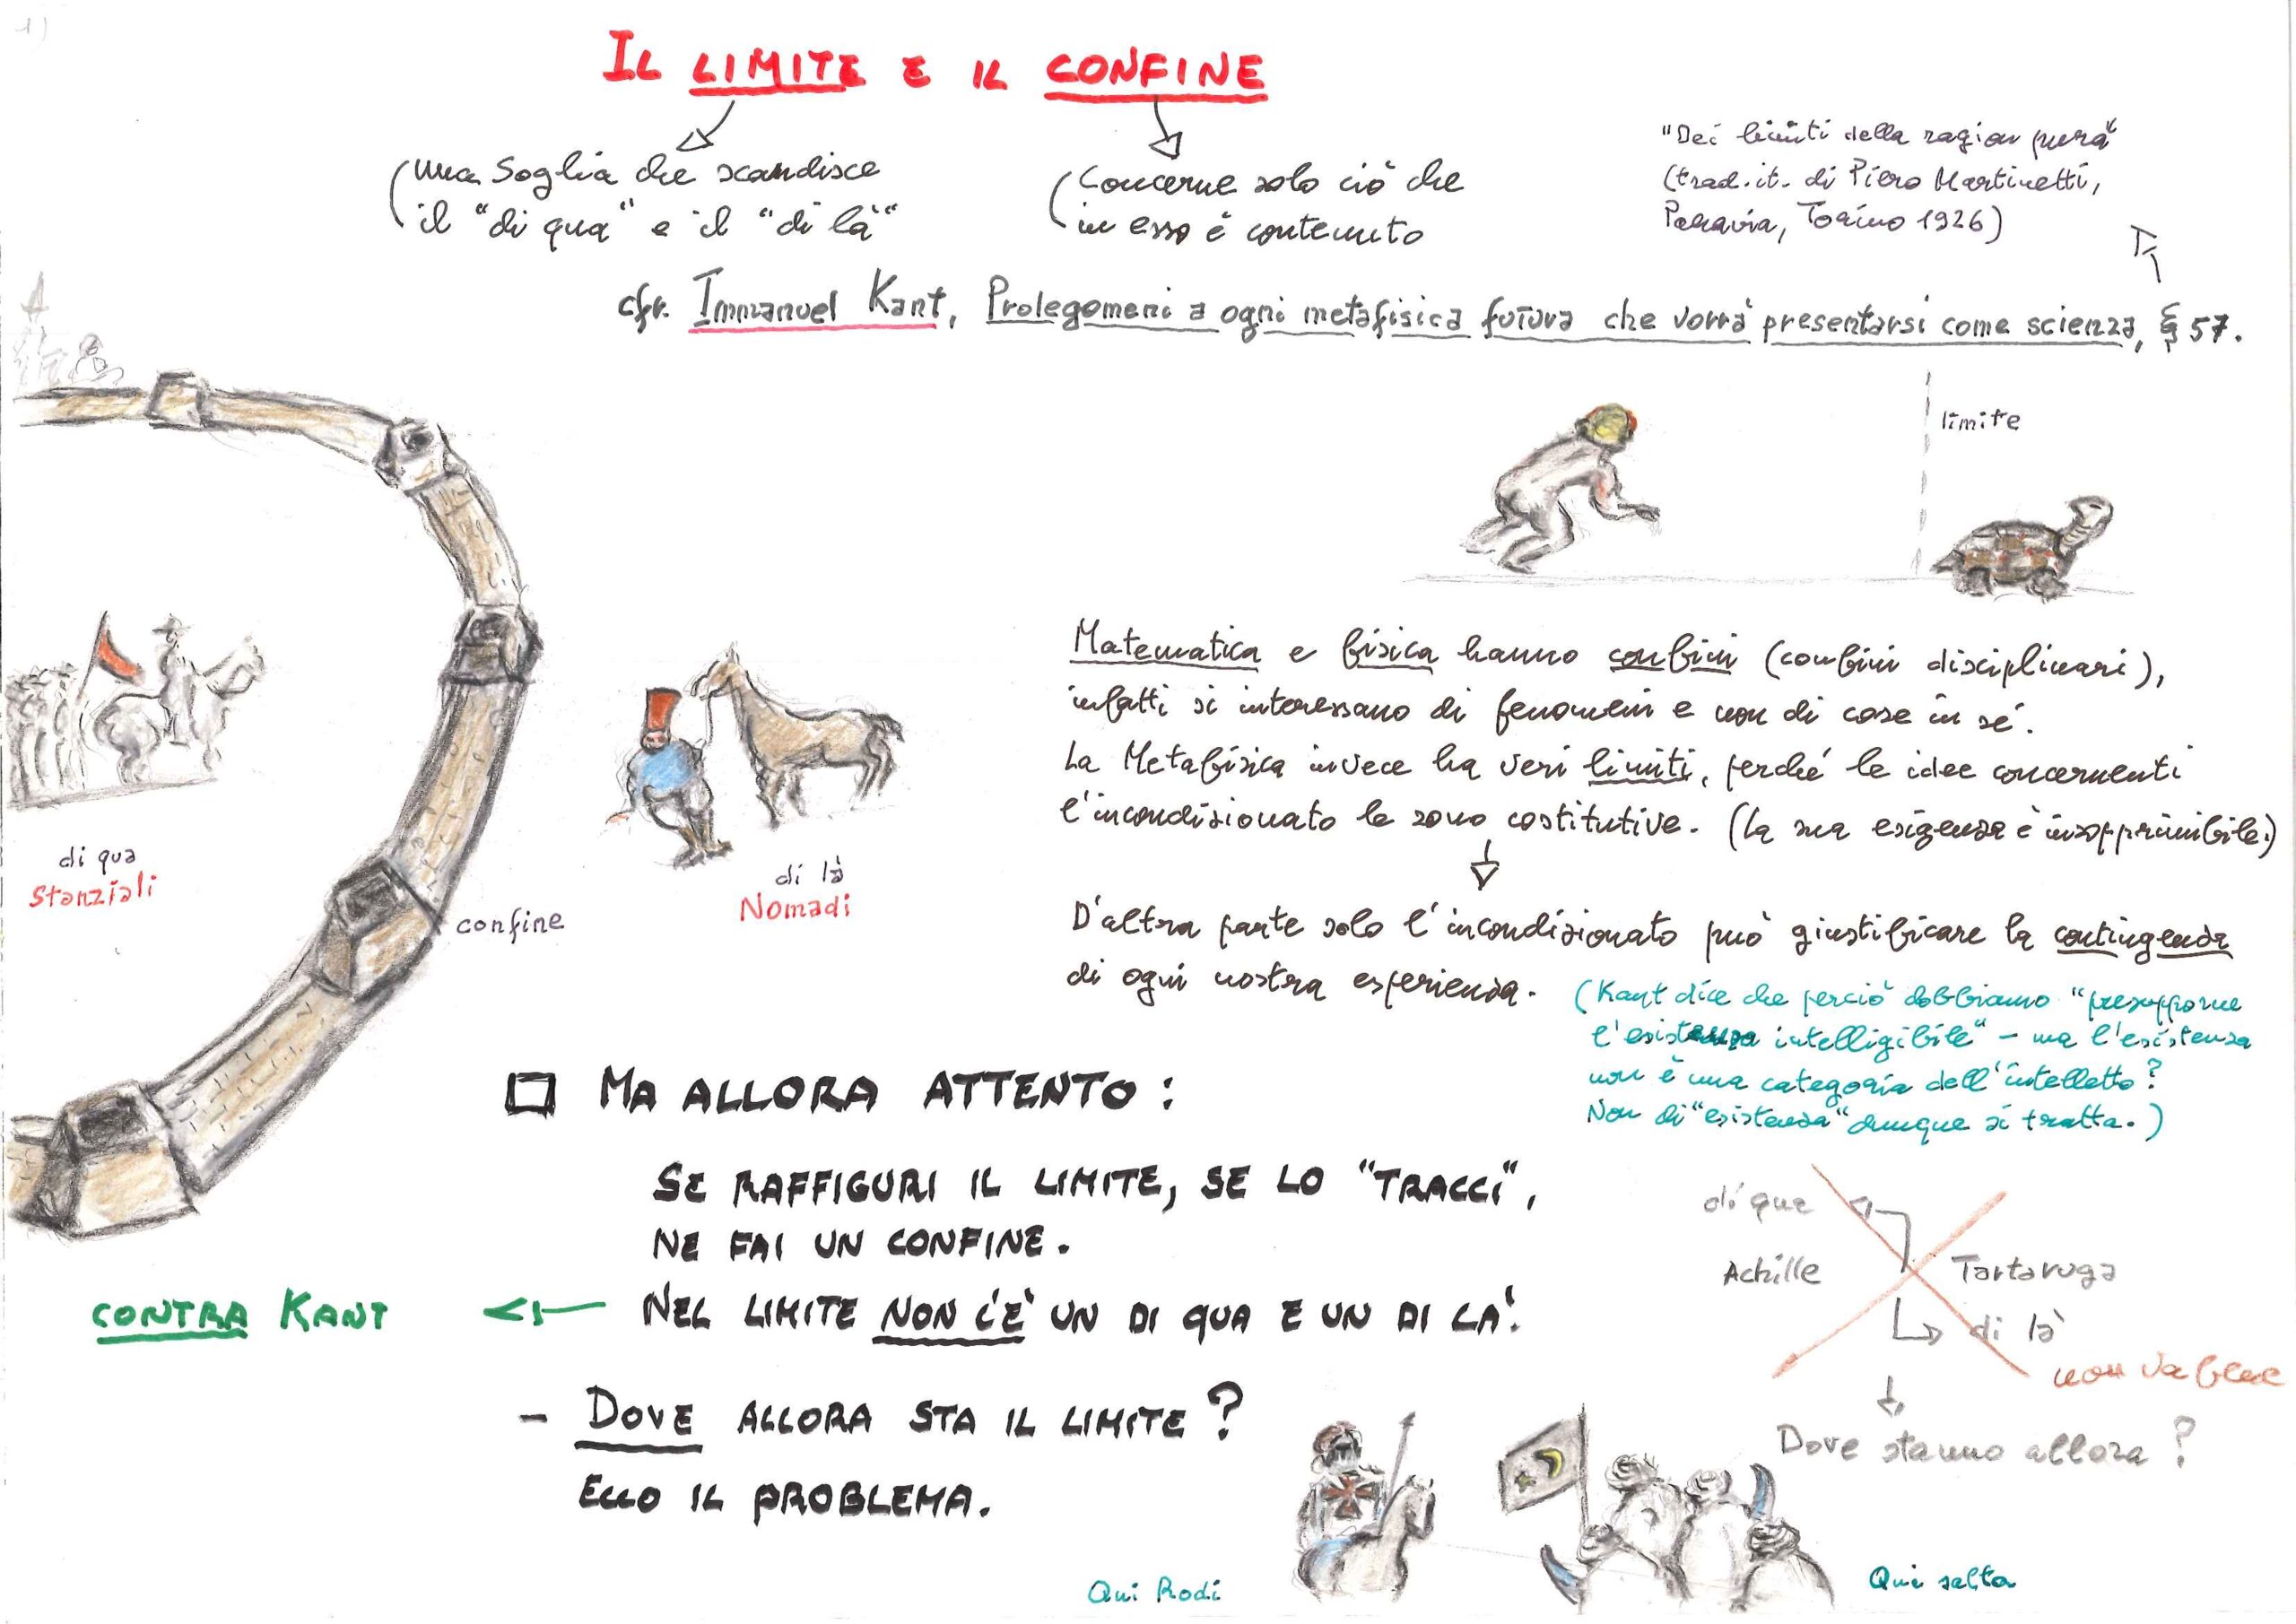 1)
IL LIMITE E IL CONFINE
(una soglia che scandisce
il "di qua" e il "di là"
(concerne solo ciò che
in esso è contenuto
"Dei limiti della ragion pura"
(trad. it. di Piero Martinetti,
Paravia, Torino 1926)
cfr. Immanuel Kant, Prolegomeni a ogni metafisica futura che vorrà presentarsi come scienza, § 57.
limite
di qua
Stanziali
confine
di là
Nomadi
Matematica e fisica hanno confini (confini disciplinari),
infatti si interessano di fenomeni e non di cose in sé.
La Metafisica invece ha veri limiti, perché le idee concernenti
l'incondizionato le sono costitutive. (La sua esigenza è insopprimibile.)
D'altra parte solo l'incondizionato può giustificare la contingenza
di ogni nostra esperienza.
(Kant dice che perciò dobbiamo "presupporne
l'esistenza intelligibile" - ma l'esistenza
non è una categoria dell'intelletto?
Non di "esistenza" dunque si tratta.)
MA ALLORA ATTENTO:
SE RAFFIGURI IL LIMITE, SE LO "TRACCI",
NE FAI UN CONFINE.
NEL LIMITE NON C'È UN DI QUA E UN DI LÀ.
CONTRA KANT
- DOVE ALLORA STA IL LIMITE?
ECCO IL PROBLEMA.
di qua
Achille
Tartaruga
di là
non va bene
Dove stanno allora?
Qui Rodi
Qui salta